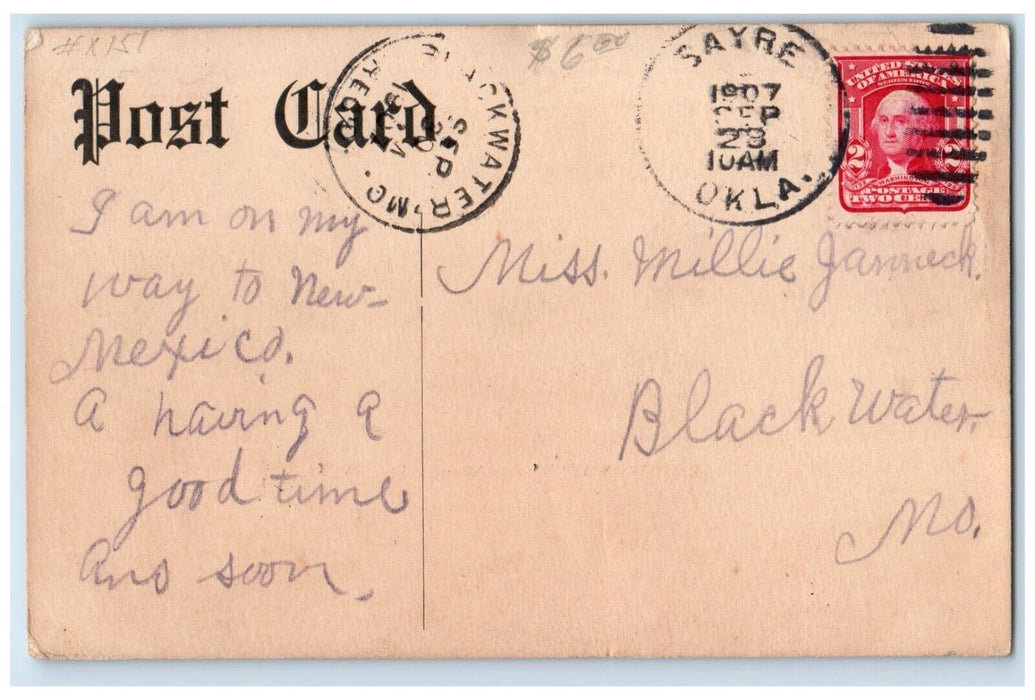 #X151
$6.00
Post Card
BLACKWATER, MO.
SEP
30
REC'D.
SAYRE
1907
SEP
28
10AM
OKLA.
UNITED STATES
OF AMERICA
SERIES 1902
2 2
WASHINGTON
POSTAGE
TWO CENTS
I am on my
way to New-
Mexico.
a having a
good time
Ans soon.
Miss. Millie Janneck.
Black Water.
Mo.